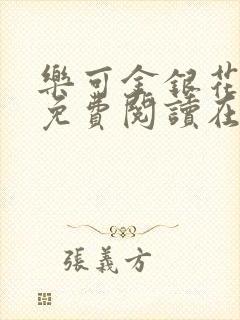 樂可金銀花
免費閱讀在
張義方